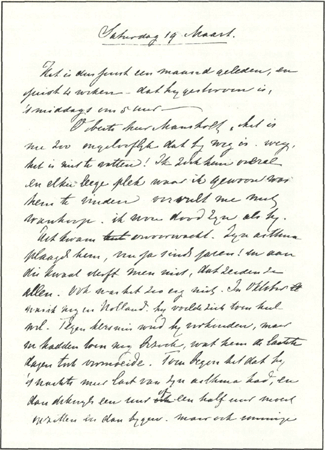 Saturdag 19 Maart.
Het is dus juist een maand geleden, en
juist 4 weken - dat hij gestorven is,
's middags om 5 uur —
O beste heer Mansholt, het is
me zoo ongeloofelijk dat hij weg is - weg,
het is niet te vatten! Ik zoek hem overal
en elke leege plek waar ik gewoon was
hem te vinden vervult me met
wanhoop. ik wou dood zijn als hij.
Het kwam onverwacht. Zijn asthma
plaagde hem, nu ja sinds jaren! en aan
die kwaal sterft men niet, dat zeiden ze
allen. Ook was het zoo erg niet. In Oktober
was ik nog in Holland. hij voelde zich toen heel
wel. Tegen kersmis werd hij verkouden, maar
we hadden toen nog bezoek, wat hem de laatste
dagen toch vermoeide. Toen begon het dat hij
's nachts meer last van zijn asthma had, en
dan dikwijls een uur of een half uur moest
opzitten in dan bijgen. maar ook sommige